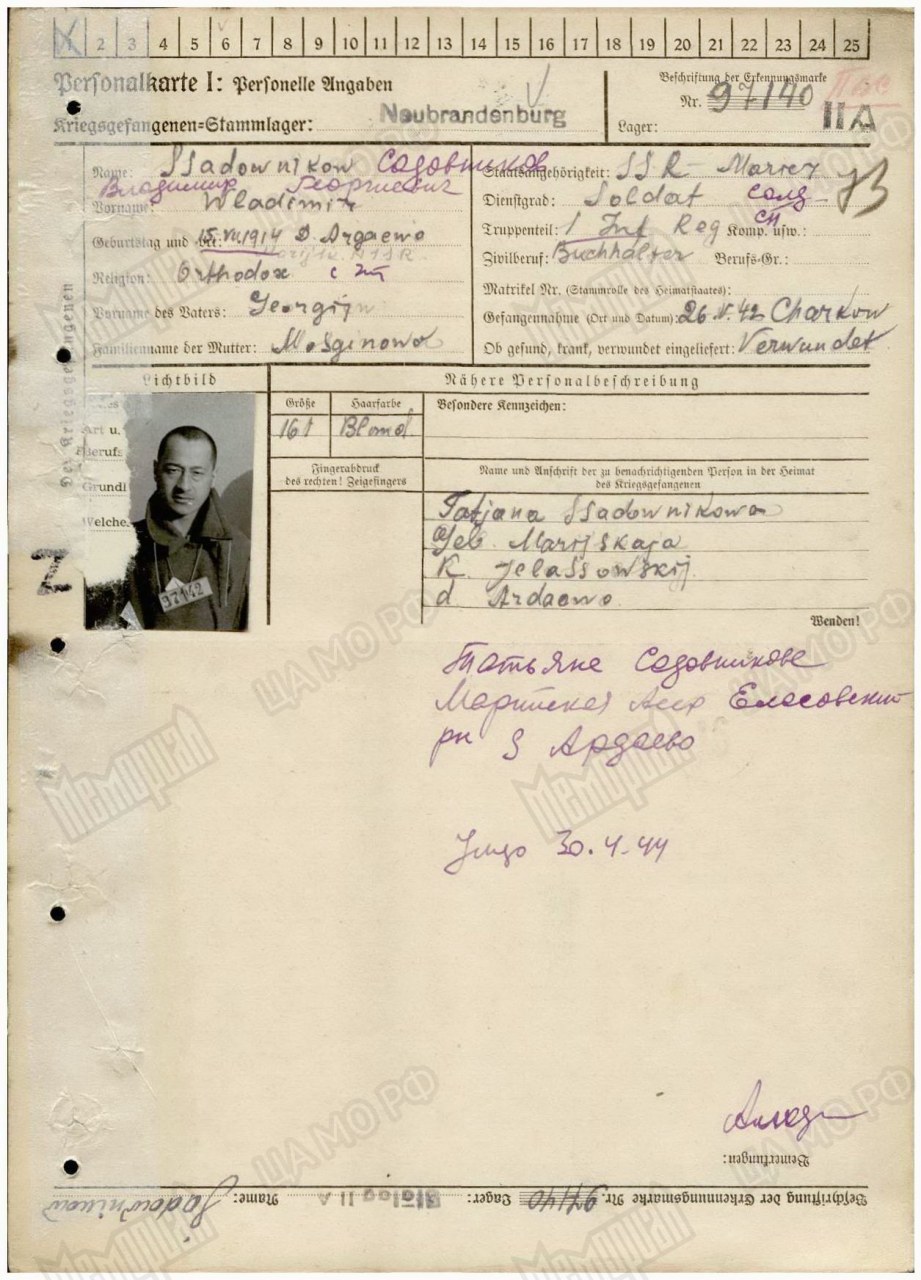 1 2 3 4 5 6 7 8 9 10 11 12 13 14 15 16 17 18 19 20 21 22 23 24 25
Personalkarte I: Personelle Angaben
Kriegsgefangenen=Stammlager: Neubrandenburg
Beschriftung der Erkennungsmarke
Nr. 97140
Lager: II A
Name: Ssadownikow Садовников
Владимир Георгиевич
Vorname: Wladimir
Geburtstag und 15.VI.1914 D. Argaewo
Religion: Orthodox
Vorname des Vaters: Georgij
Familienname der Mutter: Mosginowa
Staatsangehörigkeit: SSR Mariez
Dienstgrad: Soldat солд
Truppenteil: 1 Inf Reg Komp. usw.: сп
Zivilberuf: Buchhalter Berufs-Gr.:
Matrikel Nr. (Stammrolle des Heimatstaates):
Gefangennahme (Ort und Datum): 26.V.42 Charkow
Ob gesund, krank, verwundet eingeliefert: Verwundet
73
Des Kriegsgefangenen
Lichtbild
Nähere Personalbeschreibung
Art u.
Berufs
Grundl
Welche
97142
Z
Größe Haarfarbe Besondere Kennzeichen:
161 Blond
Fingerabdruck
des rechten! Zeigefingers
Name und Anschrift der zu benachrichtigenden Person in der Heimat
des Kriegsgefangenen
Tatjana Ssadownikowa
Geb. Marijskaja
K. Jelassowskij
d Ardaewo
Wenden!
Татьяне Садовникове
Марийская Асср Еласовский
рн д Ардаево
30.4.44
Bemerkungen:
Beschriftung der Erkennungsmarke Nr. 97140 Lager: Stalag II A Name: Sadownikow
Мемориал
ЦАМО РФ